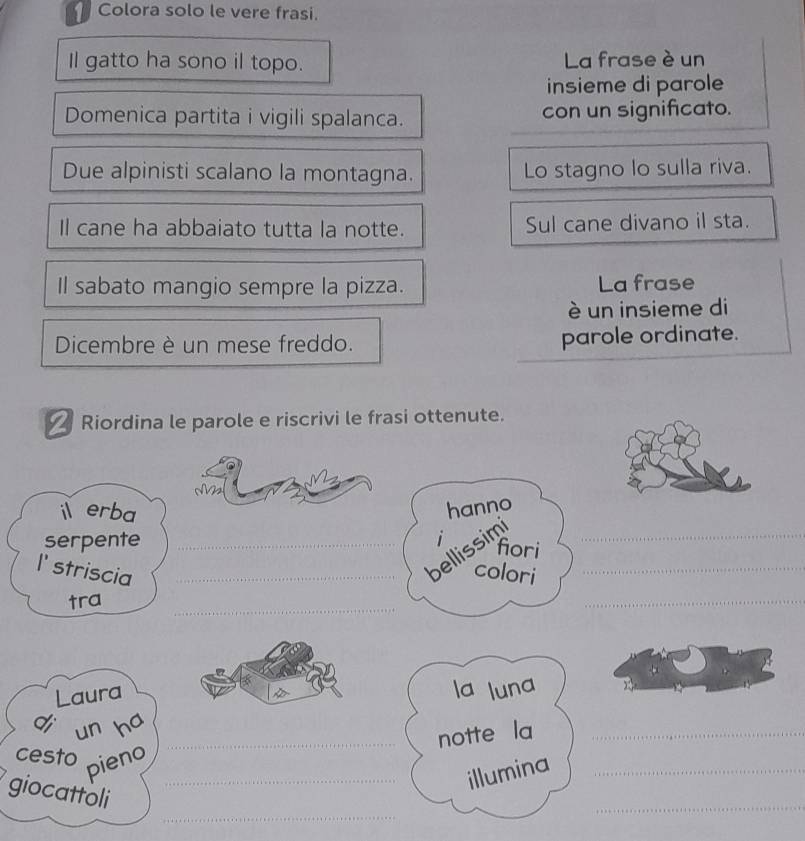 1 Colora solo le vere frasi.
Il gatto ha sono il topo.
Domenica partita i vigili spalanca.
Due alpinisti scalano la montagna.
Il cane ha abbaiato tutta la notte.
Il sabato mangio sempre la pizza.
Dicembre è un mese freddo.
La frase è un
insieme di parole
con un significato.
Lo stagno lo sulla riva.
Sul cane divano il sta.
La frase
è un insieme di
parole ordinate.
2 Riordina le parole e riscrivi le frasi ottenute.
il erba
serpente
l' striscia
tra
hanno
i bellissimi
fiori
colori
Laura
di un ha
cesto pieno
giocattoli
la luna
notte la
illumina